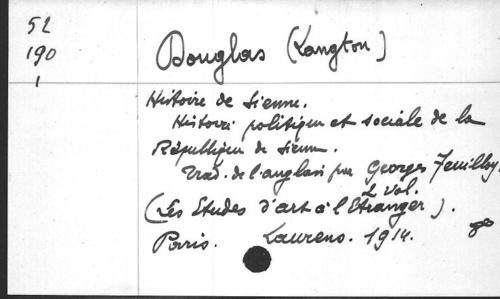 52
190
1
Douglas (Langton)
Histoire de Sienne.
Histoire politique et sociale de la
République de Sienne.
Trad. de l'anglais par Georges Feuilloy.
2 vol.
(Les Etudes d'art à l'Etranger).
Paris. Laurens. 1914. 8º